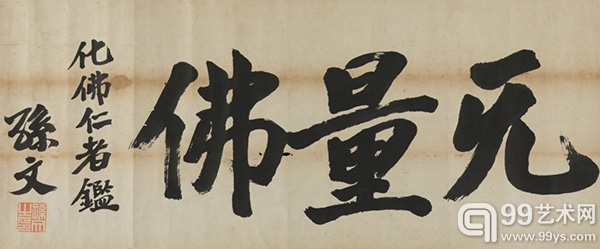 无量佛
化佛仁者鑑
孫文
99艺术网
www.99ys.com